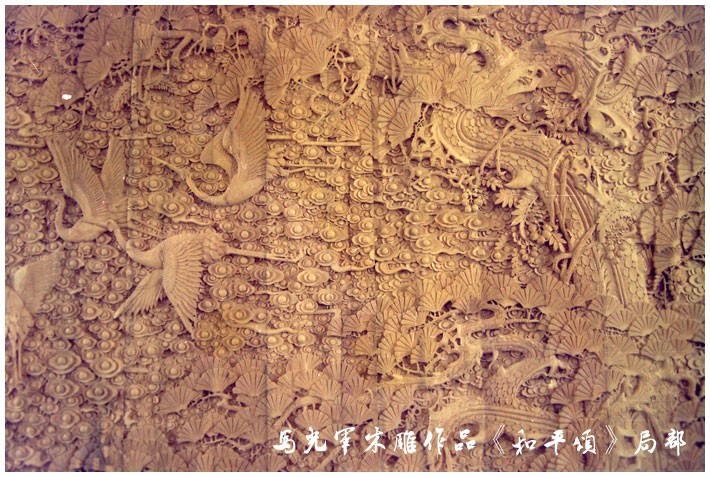 马光军木雕作品《和平颂》局部